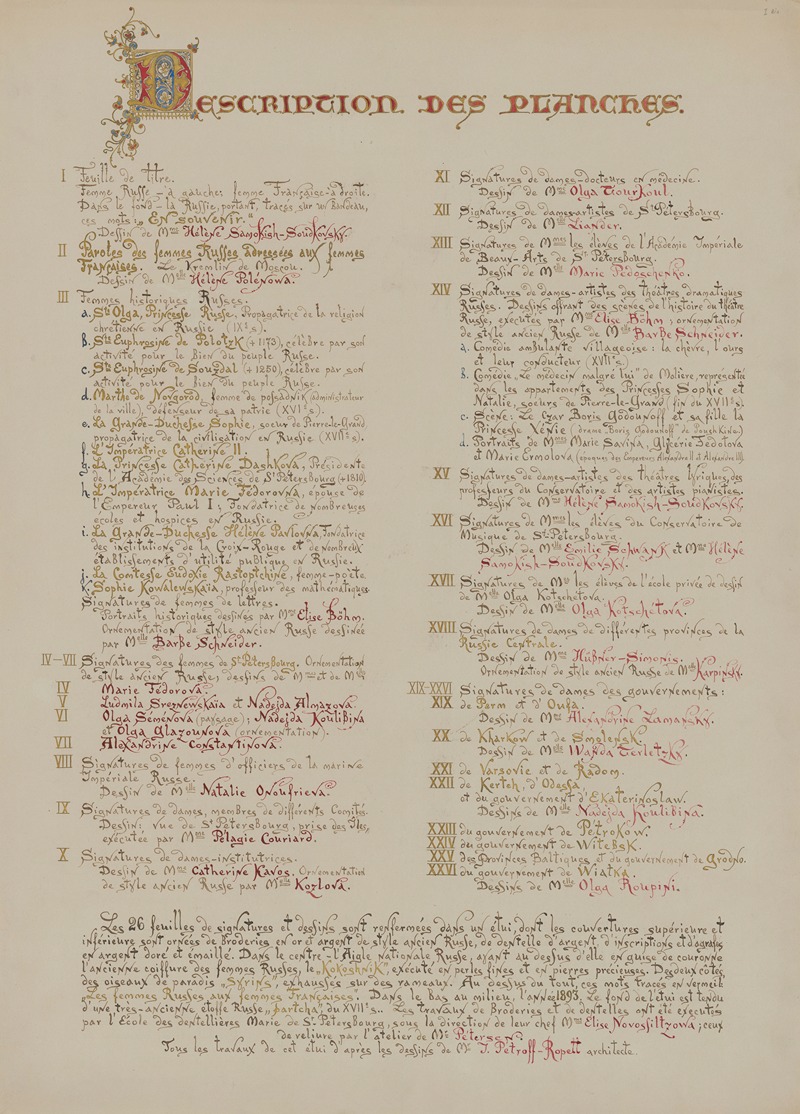 DESCRIPTION DES PLANCHES.
I Feuille de titre.
Femme Russe – à gauche; femme Française – à droite.
Dans le fond – la Russie, portant, tracés sur un bandeau,
ces mots: „EN SOUVENIR."
Dessin de Mme Hélène Samokish-Soudkovsky.
II Paroles des femmes Russes adressées aux femmes
Françaises. Le Kremlin de Moscou.
Dessin de Mlle Hélène Polénowa.
III Femmes historiques Russes.
a. Ste Olga, Princesse Russe. Propagatrice de la religion
chrétienne en Russie (IXe s).
b. Ste Euphrosine de Polotzk (+1173), célèbre par son
activité pour le bien du peuple Russe.
c. Ste Euphrosine de Souzdal (+1250), célèbre par son
activité pour le bien du peuple Russe.
d. Marthe de Novgorod, femme de possadnik (administrateur
de la ville), défenseur de sa patrie (XVIe s).
e. La Grande-Duchesse Sophie, soeur de Pierre-le-Grand
propagatrice de la civilisation en Russie (XVIIe s).
f. L'Impératrice Catherine II.
g. La Princesse Catherine Dashkova, Présidente
de l'Académie des Sciences de St Pétersbourg (+1810)
h. L'Impératrice Marie Féodorovna, épouse de
l'Empereur Paul I; fondatrice de nombreuses
écoles et hospices en Russie.
i. La Grande-Duchesse Hélène Pavlovna, fondatrice
des institutions de la Croix-Rouge et de nombreux
établissements d'utilité publique en Russie.
j. La Comtesse Eudoxie Rastoptchine, femme-poète
k. Sophie Kowalewskaïa, professeur des mathématiques
Signatures de femmes de lettres.
Portraits historiques dessinés par Mme Elise Böhm.
Ornementation de style ancien Russe dessinée
par Mlle Barbe Schneider.
IV–VII Signatures des femmes de St Pétersbourg. Ornementation
de style ancien Russe; dessins de Mme et de Mlle
IV Marie Fédorova.
V Ludmila Sresnewskaïa et Nadejda Almazova.
VI Olga Séménova (paysage); Nadejda Koulibina
et Olga Glazounova (ornementation).
VII Alexandrine Constantinova.
VIII Signatures de femmes d'officiers de la marine
Impériale Russe.
Dessin de Mlle Natalie Onoufrieva.
IX Signatures de dames, membres de différents Comités.
Dessin: Vue de St Pétersbourg, prise des Iles,
exécutée par Mme Pélagie Couriard.
X Signatures de dames-institutrices.
Dessin de Mme Catherine Kavos. Ornementation
de style ancien Russe par Mlle Kozlova.
XI Signatures de dames-docteurs en médecine.
Dessin de Mme Olga Tourkoul.
XII Signatures de dames-artistes de St Pétersbourg.
Dessin de Mme Ziander.
XIII Signatures de Mmes les élèves de l'Académie Impériale
de Beaux-Arts de St Pétersbourg.
Dessin de Mlle Marie Fédoschenko.
XIV Signatures de dames-artistes des théâtres dramatiques
Russes. Dessins offrant des scènes de l'histoire du théâtre
Russe, exécutés par Mme Elise Böhm; ornementation
de style ancien Russe de Mlle Barbe Schneider.
a. Comédie ambulante villageoise: la chèvre, l'ours
et leur conducteur (XVIIe s).
b. Comédie „Le médecin malgré lui" de Molière, représentée
dans les appartements des Princesses Sophie et
Natalie, soeurs de Pierre-le-Grand (fin du XVIIe s).
c. Scène: Le Czar Boris Godounoff et sa fille la
Princesse Xénie (drame Boris Godounoff" de Poushkine)
d. Portraits de Mmes Marie Savina, Glycérie Fedotova
et Marie Ermolova (époques des Empereurs Alexandre II et Alexandre III).
XV Signatures de dames-artistes des théâtres lyriques, des
professeurs du Conservatoire et des artistes pianistes.
Dessin de Mme Hélène Samokish-Soudkovsky.
XVI Signatures de Mmes les élèves du Conservatoire de
Musique de St-Pétersbourg.
Dessin de Mlle Emilie Schwank et Mme Hélène
Samokish-Soudkovsky.
XVII Signatures de Mes les élèves de l'école privée de dessin
de Mlle Olga Kotschetova.
Dessin de Mlle Olga Kotschetova.
XVIII Signatures de dames de différentes provinces de la
Russie Centrale.
Dessin de Mme Hübner-Simonis.
Ornementation de style ancien Russe de Mlle Karpinsky.
XIX–XXVI Signatures de dames des gouvernements:
XIX de Perm et d'Oufa.
Dessin de Mme Alexandrine Lamansky.
XX de Kharkow et de Smolensk.
Dessin de Mlle Wanda Terletzky.
XXI de Varsovie et de Radom.
XXII de Kertch, d'Odessa,
et du gouvernement d'Ekaterinoslaw.
Dessins de Mlle Nadejda Koulibina.
XXIII du gouvernement de Petrokow.
XXIV du gouvernement de Witebsk.
XXV des Provinces Baltiques et du gouvernement de Grodno.
XXVI du gouvernement de Wiatka.
Dessins de Mlle Olga Roupini.
Les 26 feuilles de signatures et dessins sont renfermées dans un étui, dont les couvertures supérieure et
inférieure sont ornées de broderies en or et argent de style ancien Russe, de dentelle d'argent, d'inscriptions et d'agrafes
en argent doré et émaillé. Dans le centre – l'Aigle nationale Russe, ayant au dessus d'elle en guise de couronne
l'ancienne coiffure des femmes Russes, le „Kokoshnik", exécuté en perles fines et en pierres précieuses. Des deux côtés
des oiseaux de paradis „Syrins", exhaussés sur des rameaux. Au dessus du tout, ces mots tracés en vermeil
„Les femmes Russes aux femmes Françaises". Dans le bas au milieu, l'année 1893. Le fond de l'étui est tendu
d'une très-ancienne étoffe Russe „partcha", du XVIIe s. Les travaux de broderies et de dentelles ont été exécutés
par l'Ecole des dentellières Marie de St Pétersbourg, sous la direction de leur chef Mme Elise Novossiltzowa; ceux
de reliure par l'atelier de Mr Petersen.
Tous les travaux de cet étui d'après les dessins de Mr I. Petroff-Ropett architecte.